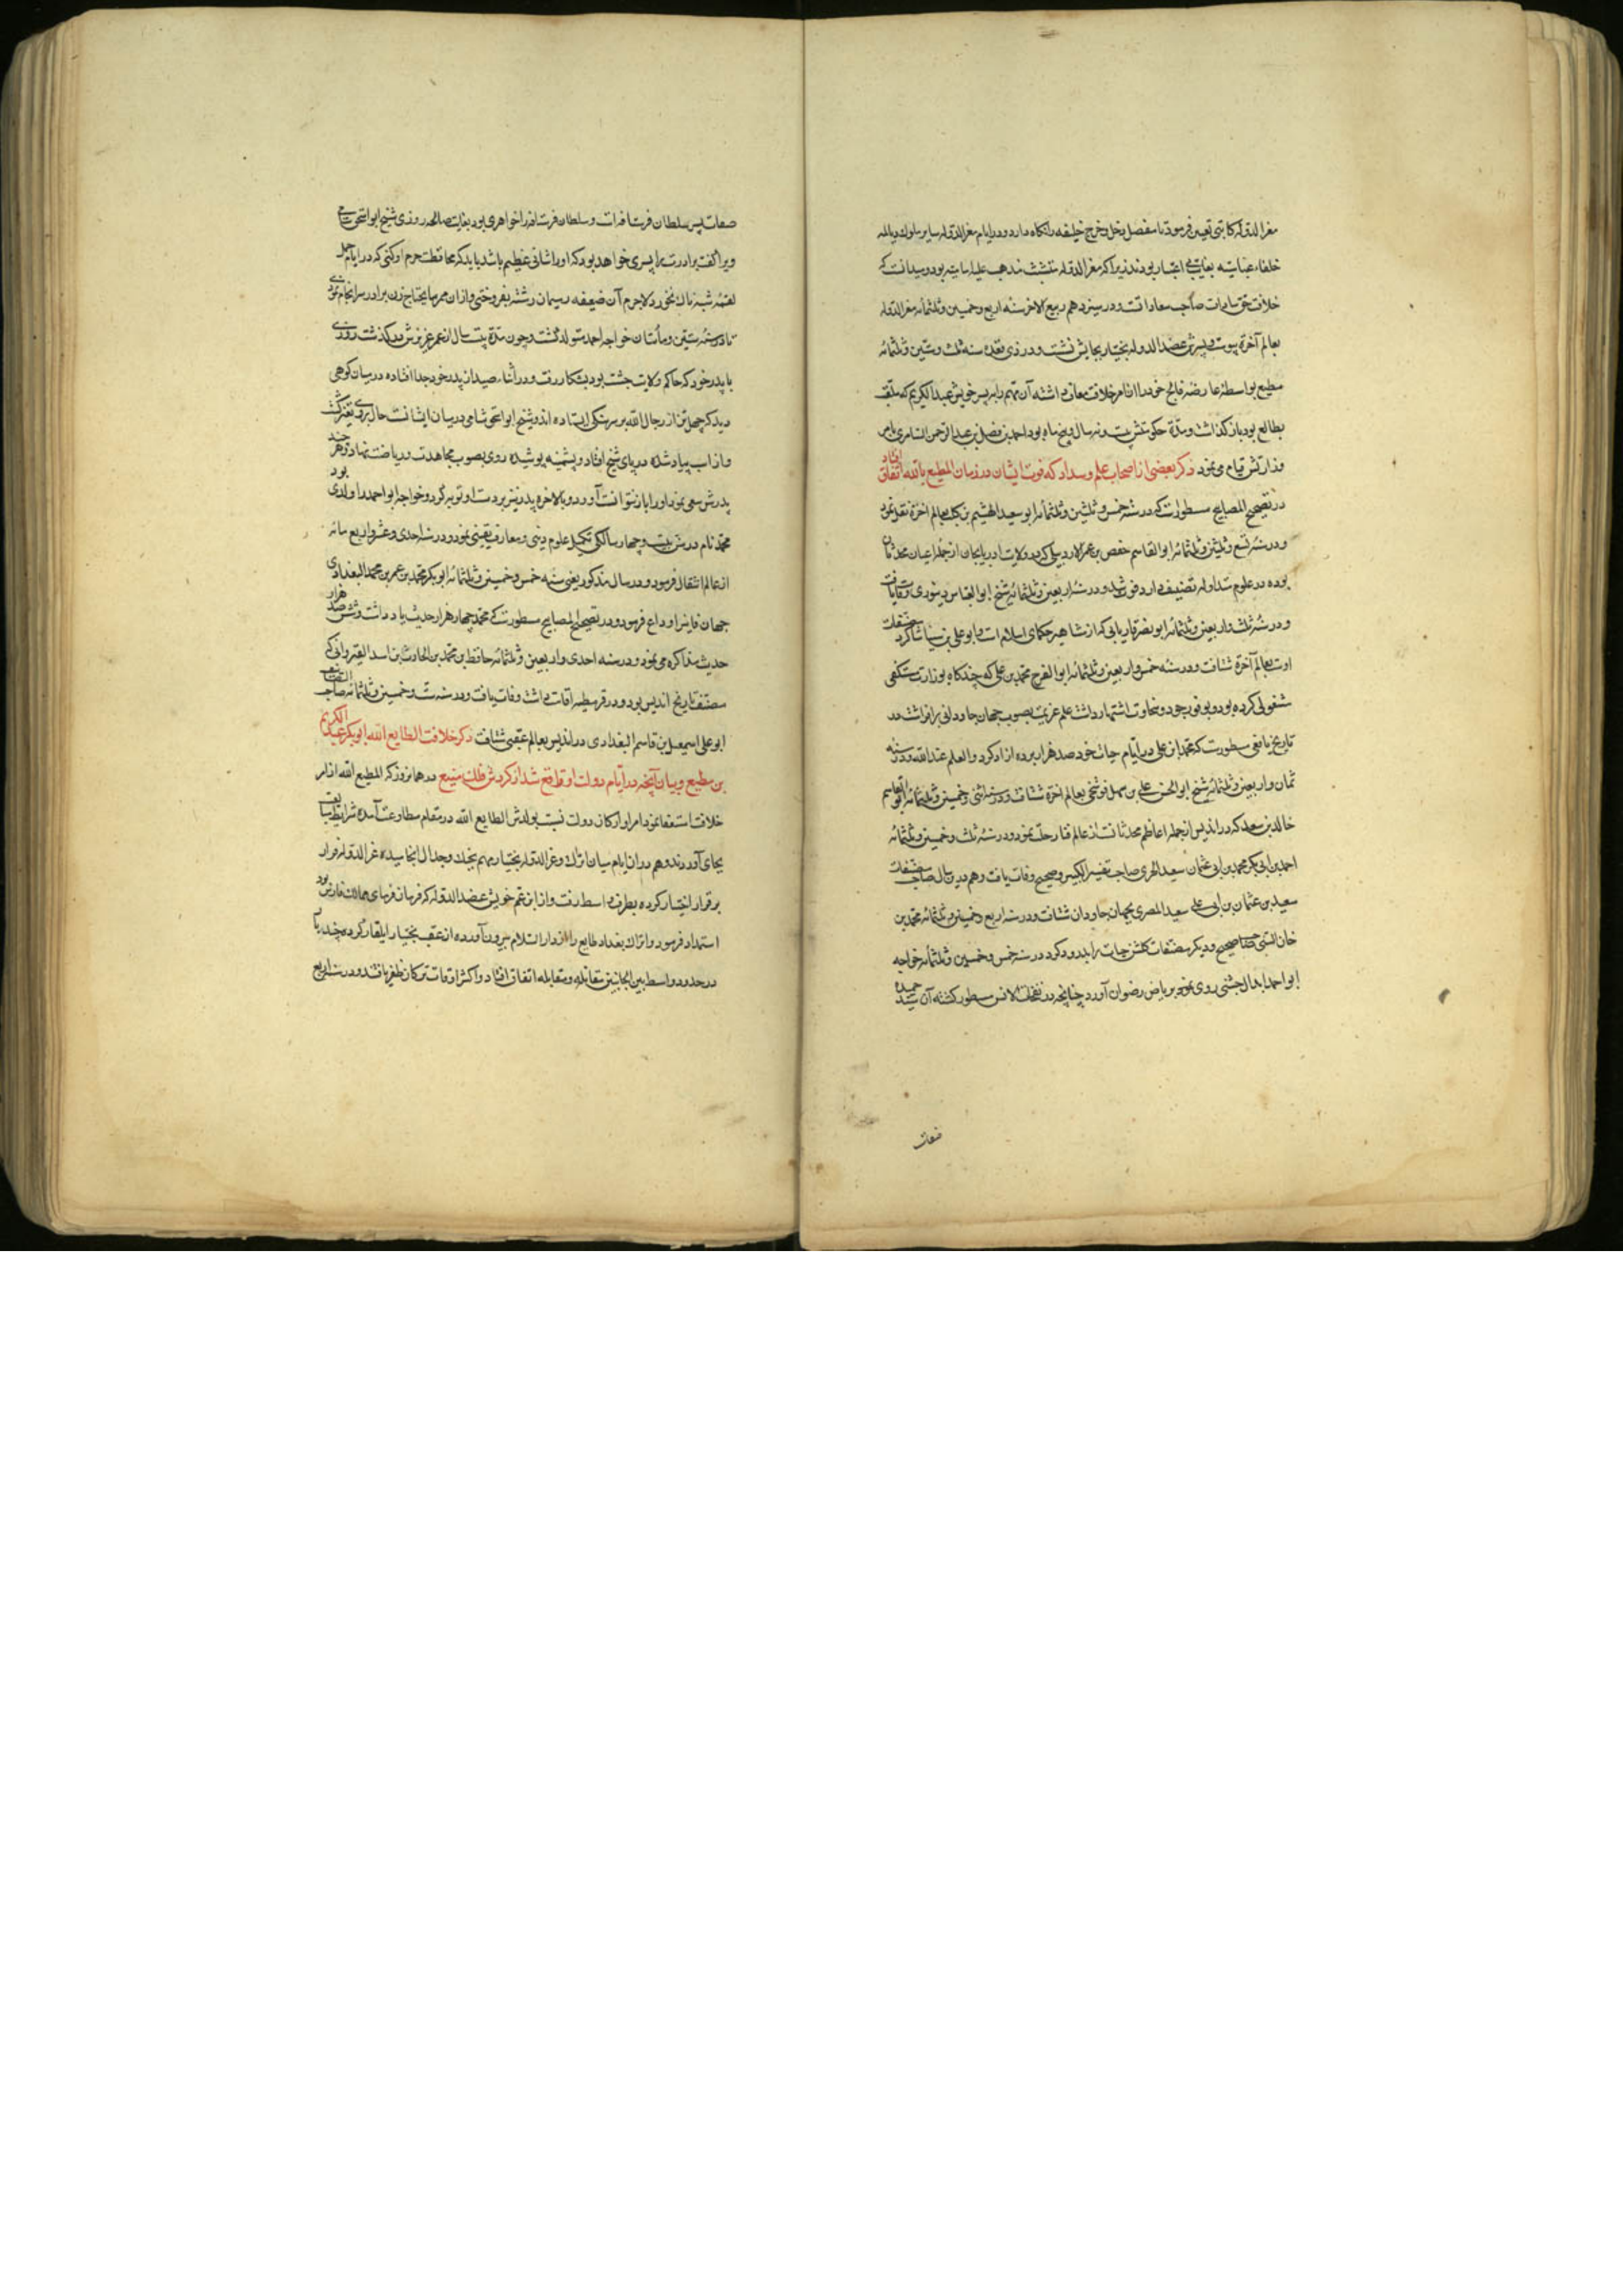 معزالدوله کاتبی تعیین فرمود تا مفصل دخل و خرج خلیفه را نگاه دارد و در ایام معزالدوله سایر ملوک دیالمه
خلفاء عباسیه بغایت بی اعتبار بودند زیرا که معزالدوله مذهب علیه امامیه بود و میدانست که
خلافت حق سادات صاحب سعادانست و در سیزدهم ربیع الاخر سنه اربع و خمسین و ثلثمائه معزالدوله
بعالم آخرة پیوست و پسرش عضدالدوله بختیار بجایش نشست و در ذی قعده سنه ثلث و ستین و ثلثمائه
مطیع بواسطه عارضه فالج خود را از امر خلافت معاف داشته آن مهم را به پسر خویش عبدالکریم که ملقب
بطالع بود باز گذاشت و مدّة حکومتش بیست و نه سال و پنج ماه بود احمد بن فضل بن عبدالرحمن السامری بامر
وزارتش قیام می نمود ذکر بعضی از اصحاب علم و سداد که فوت ایشان در زمان المطیع بالله اتفاق افتاد
در تصحیح المصابیح مسطورست که در سنه خمس و ثلثین و ثلثمائه ابو سعید الهشیم بن کلیب بعالم اخرة نقل نمود
و در سنه تسع و ثلثین و ثلثمائه ابوالقاسم حفص بن عمر الاردبیلی که در ولایت ادربایجان از جمله اعیان محدثان
بوده در علوم متداوله تصنیف دارد فوت شد و در سنه اربعین و ثلثمائه شیخ ابوالعباس دینوری وفات یافت
و در سنه ثلث و اربعین و ثلثمائه ابو نصر فاریابی که از مشاهیر حکمای اسلام است و ابو علی بن سینا شاکرد مصنفات
اوست بعالم آخرة شتافت و در سنه خمس و اربعین و ثلثمائه ابوالفرج محمد بن علی که چندگاه بوزارت مستکفی
مشغولی کرده بود و بوفور جود و سخاوت اشتهار داشت علم عزیمت بصوب جهان جاودانی برافراشت در
تاریخ یافعی مسطورست که محمد ابن علی در ایام حیات خود صد هزار برده ازاد کرد و العلم عندالله و در سنه
ثمان و اربعین و ثلثمائه شیخ ابوالحسن علی بن سهل فوشنجی بعالم اخرة شتافت و در سنه اثنی و خمسین و ثلثمائه ابوالقاسم
خالد بن سعید که در اندلس از جمله اعاظم محدثانست از عالم فنا رحلت نمود و در سنه ثلث و خمسین و ثلثمائه
احمد بن ابی بکر محمد بن ابی عثمان سعید الحری صاحب تفسیر الکبیر و صحیح وفات یافت و هم درین سال صاحب مصنفات
سعید بن عثمان بن ابی علی سعید المصری بجهان جاودان شتافت و در سنه اربع و خمسین و ثلثمائه محمد بن
حبان البستی صاحب صحیح و دیگر مصنفات گلشن حیات را بدرود کرد در سنه خمس و خمسین و ثلثمائه خواجه
ابو احمد ابدال چشتی روی توجه بریاض رضوان آورد چنانچه در نفحات الانس مسطور گشته آن سید حمیده
صفات
صفات پسر سلطان فرسنافه است و سلطان فرسنافه را خواهری بود بغایت صالحه روزی شیخ ابو اسحق شامی
ویرا گفت برادرت را پسری خواهد بود که او را شانی عظیم باشد باید که محافظت حرم او کنی که در ایام حمل
لقمه شبهه ناک نخورد لاجرم آن ضعیفه ریسمان رشته بفروختی و از ان ممر ما یحتاج زن برادر سرانجام نمودی
تا در سنه ستین و مأتان خواجه احمد متولد گشت و چون مدّة بیست سال از عمر عزیزش در گذشت روزی
با پدر خود که حاکم ولایت چشت بود بشکار رفت و در اثناء صید از پدر خود جدا افتاده در میان کوهی
دید که چهل تن از رجال الله بر سر سنگی ایستاده اند و شیخ ابو اسحق شامی در میان ایشانست حال بر وی متغیر گشت
و از اسب پیاده شده در پای شیخ افتاد و پشمینه پوشیده روی بصوب مجاهدت و ریاضت نهاد و هر چند
پدرش سعی نمود او را باز نتوانست آورد و بالاخره پدر نیز بر دست او توبه کرد و خواجه ابو احمد را ولدی بود
محمد نام در سن بیست و چهار سالگی تکمیل علوم دینی و معارف یقینی نمود و در سنه احدی و عشر و اربع مائه
از عالم انتقال فرمود و در سال مذکور یعنی سنه خمس و خمسین و ثلثمائه ابو بکر محمد بن عمر بن محمد البغدادی
جهان فانی را وداع فرمود و در تصحیح المصابیح مسطورست که محمد چهار هزار حدیث یاد داشت و شش صد هزار
حدیث مذاکره می نمود و در سنه احدی و اربعین و ثلثمائه حافظ بن محمد بن الحارث بن اسد القیروانی که
مصنف تاریخ اندلس بود و در قرطبه اقامت داشت وفات یافت و در سنه ست و خمسین و ثلثمائه صاحب التصانیف
ابو علی اسمعیل بن قاسم البغدادی در اندلس بعالم عقبی شتافت ذکر خلافت الطایع الله ابو بکر عبد الکریم
بن مطیع و بیان آنچه در ایام دولت او واقع شد از گردش فلک منیع در همان روز که المطیع الله از امر
خلافت استعفا نمود امرا و ارکان دولت نسبت بولدش الطایع الله در مقام مطاوعت آمده شرایط بیعت
بجای آوردند و هم در ان ایام میان اتراک و عزالدوله بختیار مهم بجنگ و جدال انجامیده عزالدوله فرار
بر قرار اختیار کرده بطرف واسط رفت و از ابن عم خویش عضدالدوله که فرمان فرمای ممالک فارس بود
استمداد فرمود و اتراک بغداد طایع را از دارالسلام بیرون آورده از عقب بختیار ایلغار کرده چند
در حدود واسط بین الجانبین مقاتله و مقابله اتفاق افتاد و اکثر اوقات ترکان ظفر یافتند و در سنه اربع